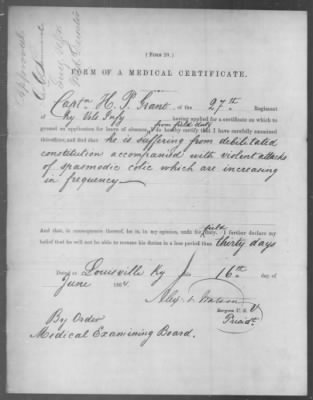 Approved
(FORM 20.)
FORM OF A MEDICAL CERTIFICATE.
Captn H. P. Grant of the 27th Regiment
of Ky. Vols Infy having applied for a certificate on which to
ground an application for leave of absence, from field duty I do hereby certify that I have carefully examined
this officer, and find that he is suffering from debilitated
constitution accompanied with violent attacks
of spasmodic colic which are increasing
in frequency
And that, in consequence thereof, he is, in my opinion, unfit for field duty. I further declare my
belief that he will not be able to resume his duties in a less period than thirty days
Dated at Louisville Ky this 16th day of
June 1864.
Alex. Watson
Surgeon U. S. V
Presidt.
By Order
Medical Examining Board.